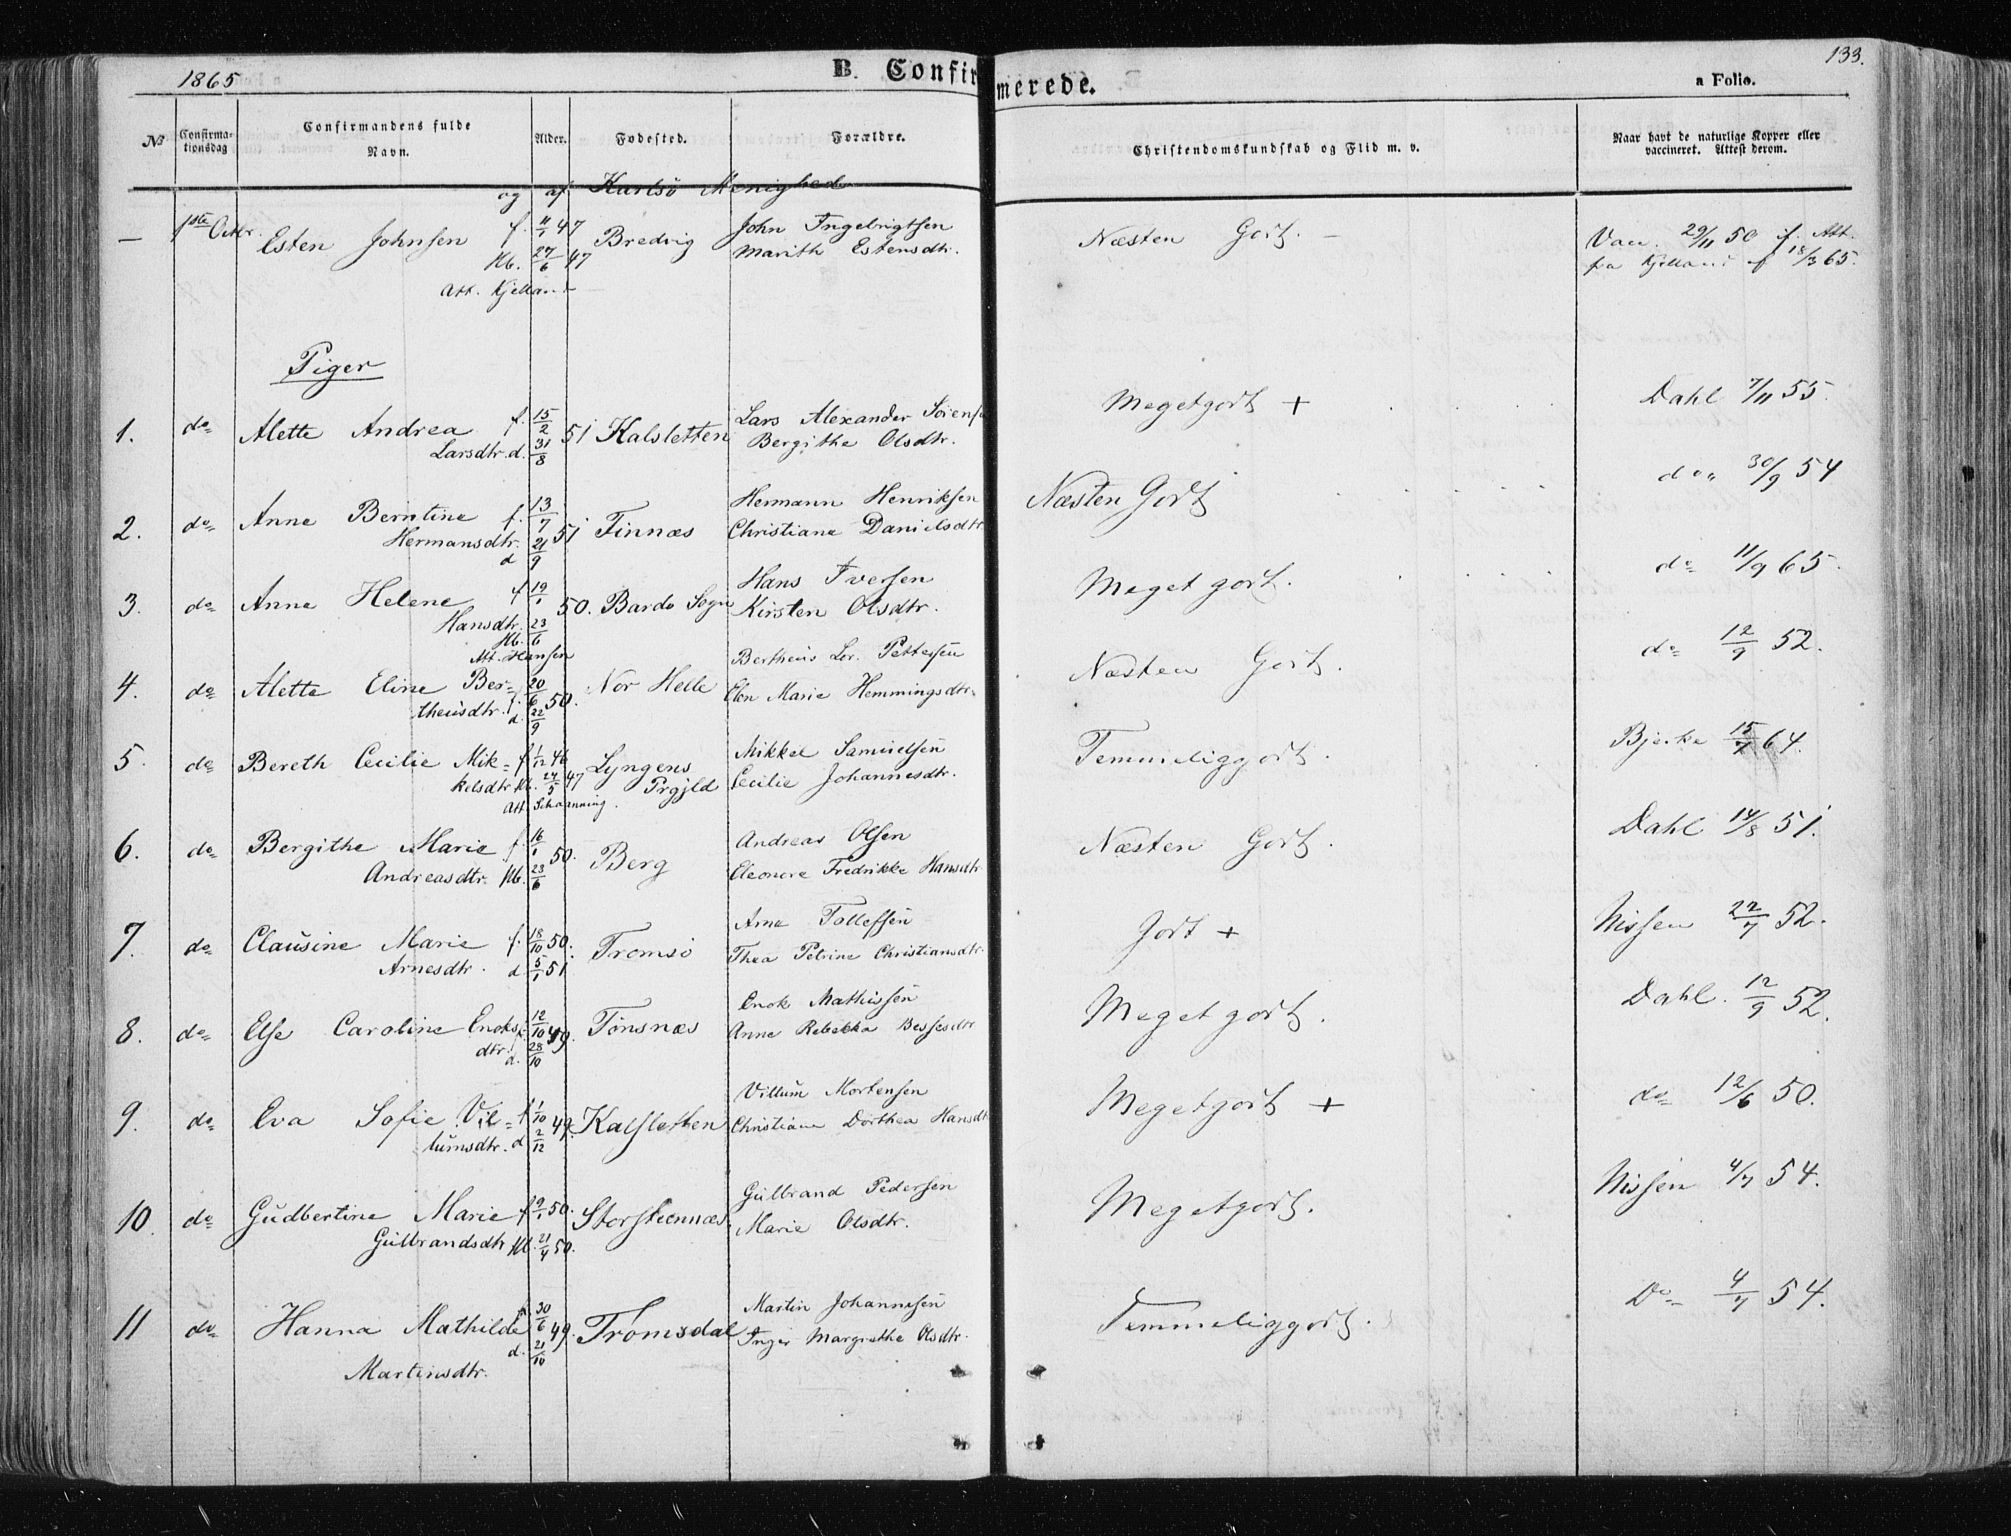 1865
B. Confirmerede.
133.
a Folio.
No
Confirmationsdag
Confirmandens fulde Navn.
Alder.
Fodested.
Forældre.
Christendomskundskab og Flid m. v.
Naar havt de naturlige Kopper eller vaccineret. Attest derom.
og af Karlsö Menighed
— 1ste Octbr. Esten Johnsen f. 11/1 47 Bredvig John Ingebrigtsen Næsten Godt. — Vacc. 29/11 50 if. Att.
Hb. 27/6 47 Marith Estensdtr. fra Kjelland af 18/3 65.
Att. Kjelland
Piger
1. do Alette Andrea f. 15/2 51 Kalsletten Lars Alexander Sörensen Megetgodt + Dahl 7/11 55.
Larsdtr. d. 31/8 Bergithe Olsdtr.
2. do Anne Berntine f. 13/7 51 Finnæs Hermann Henriksen Næsten Godt do 30/9 54
Hermansdtr. d 21/9 Christiane Danielsdtr
3. do Anne Helene f 19/1 50. Bardo Sogn Hans Iversen Meget godt. do 11/9 65.
Hansdtr. Hb. 23/6 Kirsten Olsdtr.
Att. Hansen
4. do Alette Eline Ber- f. 20/6 50. Nor Helle Bertheus Lor. Pettersen Næsten Godt. do 12/9 52.
theusdtr. d. 22/9 Elen Marie Hemmingsdtr.
5. do Bereth Cecilie Mik- f 1/12 46 Lyngens Mikkel Samuelsen Temmeliggodt. Bjerke 15/7 64.
kelsdtr Hb. 24/5 47 Prgjld Cecilie Johannesdtr.
Att. Schanning.
6. do Bergithe Marie f. 16/1 50. Berg Andreas Olsen Næsten Godt. Dahl 14/8 51.
Andreasdtr. Hb. 23/6 Eleonore Fredrikke Hansdtr
7. do Clausine Marie f. 18/10 50. Tromsö Arne Tollefsen Godt + Nissen 22/7 52.
Arnesdtr. d. 5/1 51 Thea Petrine Christiansdtr.
8. do Else Caroline Enoks- f. 12/10 49. Tönsnæs Enok Mathisen Meget godt. Dahl. 12/9 52.
dtr. d. 28/10 Anne Rebekka Bessesdtr
9. do Eva Sofie Vil- f 1/10 49. Kalsletten Villum Mortensen Megetgodt + do 12/6 50.
lumsdtr. d 2/12 Christiane Dorthea Hansdtr
10. do Gudbertine Marie f 9/1 50. Storsteennæs. Gulbrand Pedersen Megetgodt. Nissen 4/7 54.
Gulbrandsdtr Hb. 21/4 50. Marie Olsdtr.
11 do Hanna Mathilde f. 30/6 49. Tromsdal Martin Johannesen Temmeliggodt. Do 4/7 54.
d. 21/10 Inger Margrethe Olsdtr.
Martinsdtr.